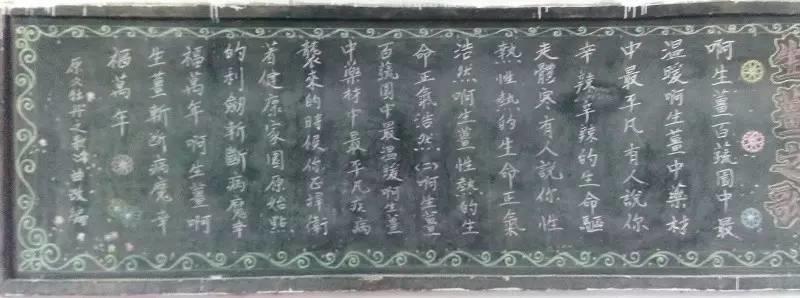 生薑之歌
啊生薑百蔬園中最
温暖啊生薑中藥材
中最平凡有人說你
辛辣辛辣的生命驅
走體寒有人說你性
熱性熱的生命正氣
浩然啊生薑性熱的生
命正氣浩然(二)啊生薑
百蔬園中最温暖啊生薑
中藥材中最平凡疾病
襲來的時候你正捍衛
着健康家園原始點
的利劍斬斷病魔幸
福萬年啊生薑啊
生薑斬斷病魔幸
福萬年
原之歌曲改編